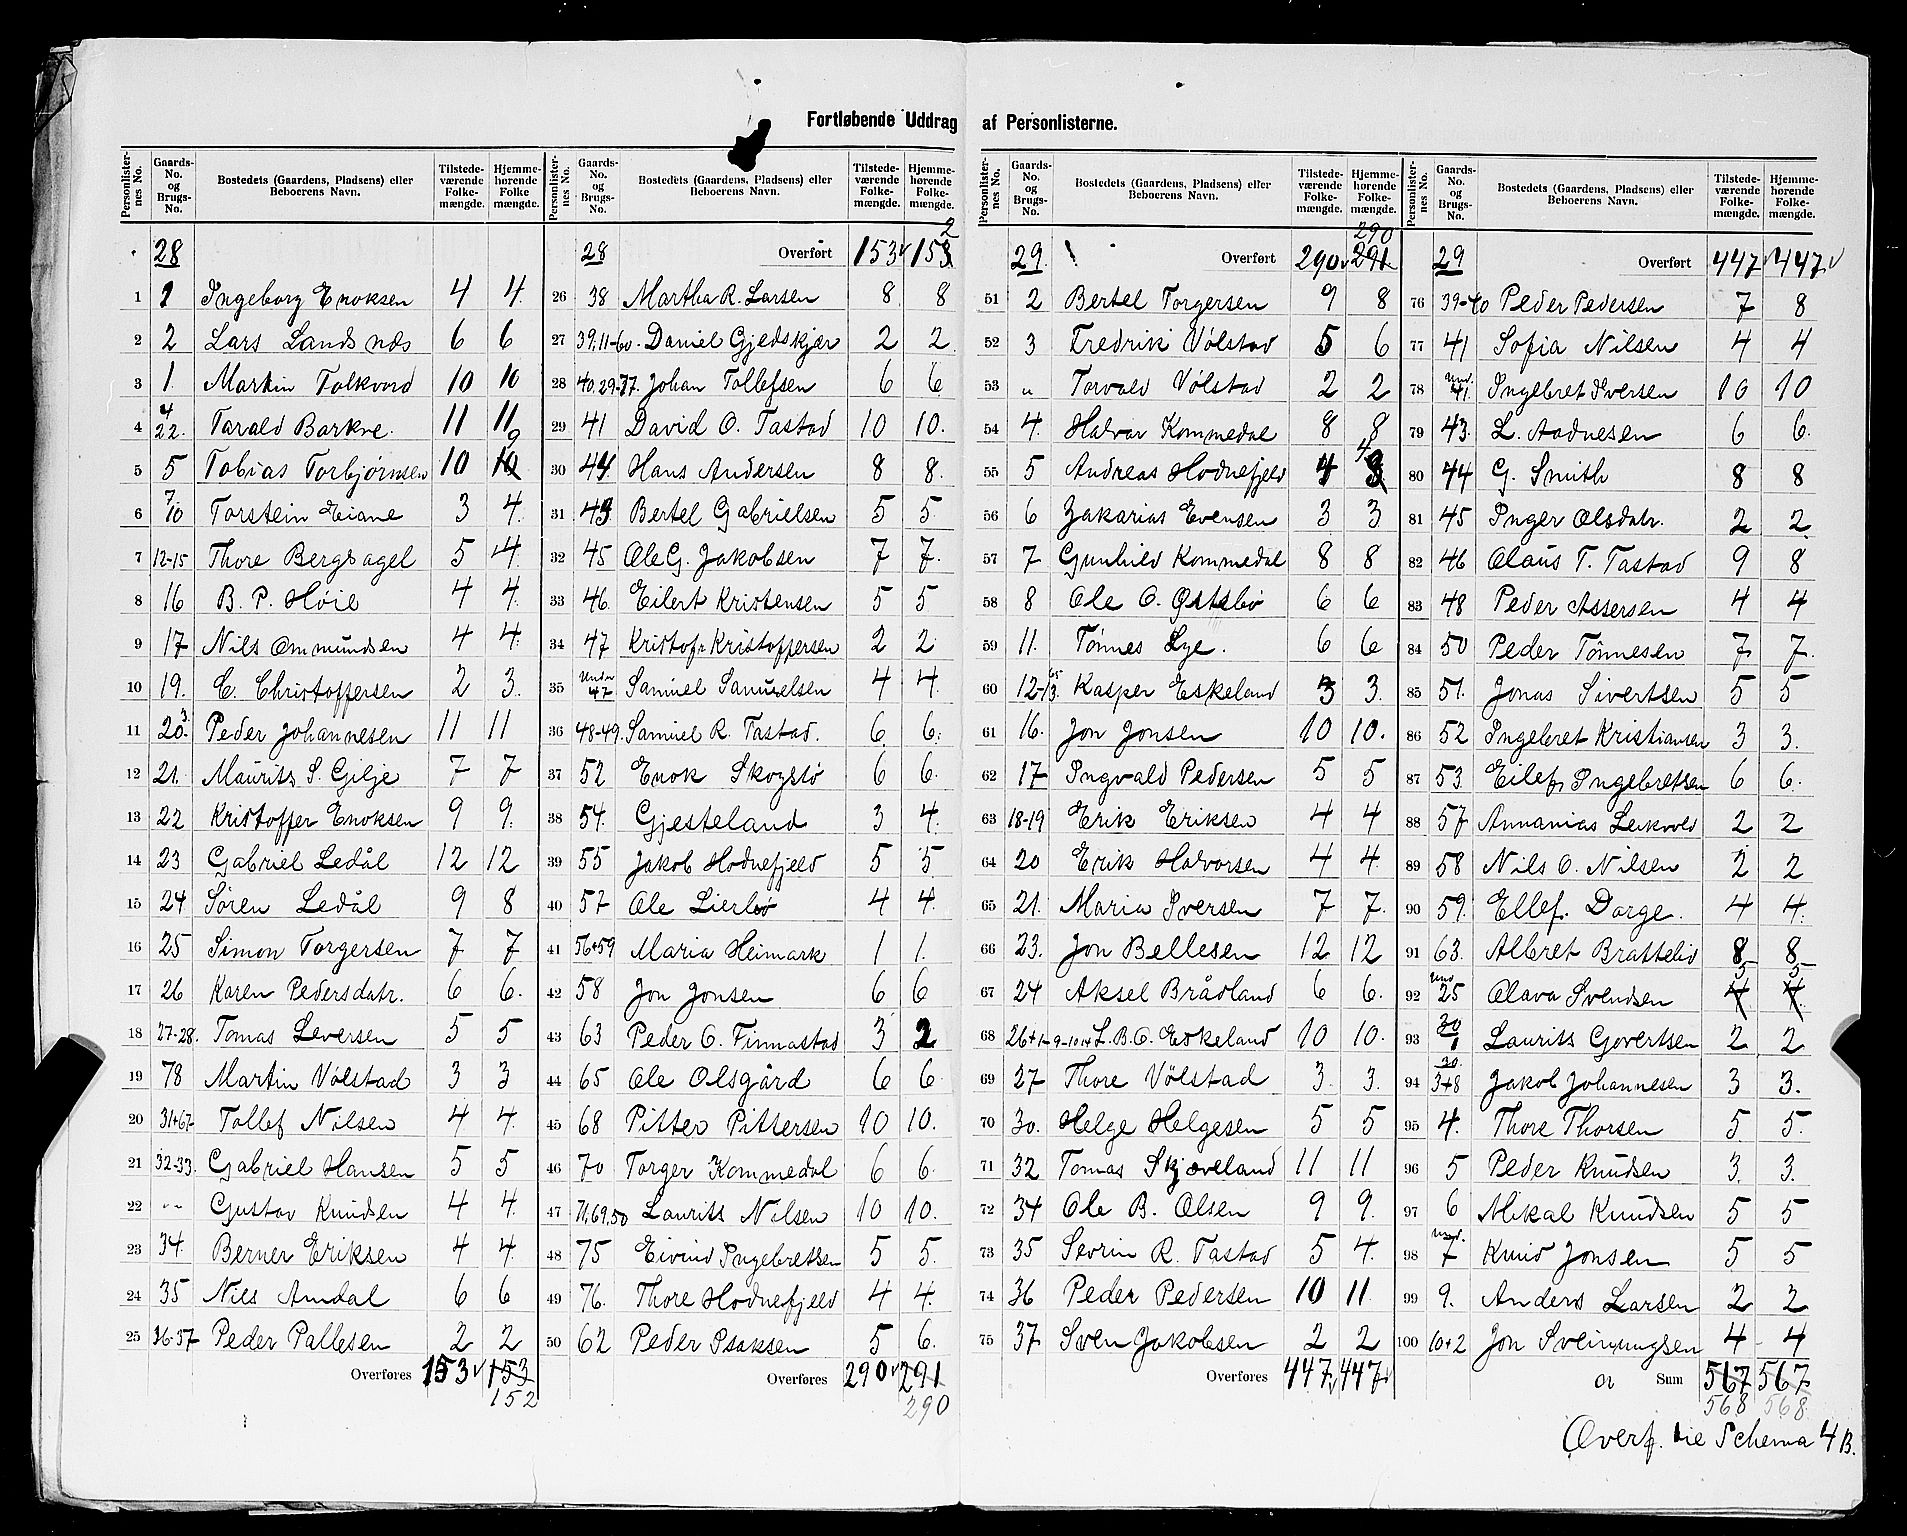 Fortløbende Uddrag af Personlisterne.
Personlisternes No. | Gaards-No. og Brugs-No. | Bostedets (Gaardens, Pladsens) eller Beboerens Navn. | Tilstedeværende Folkemængde. | Hjemmehørende Folkemængde.
28
1 1 Ingeborg Enoksen 4 4.
2 2 Lars Landsnæs 6 6
3 1. Martin Tolkvord 10 10
4 4/22. Tarald Barkve. 11 11
5 5 Tobias Torbjørnsen 10 10 9
6 7/10 Torstein Eiane 3 4.
7 12-15 Thore Bergsagel 5 4.
8 16 B. P. Høie 4 4.
9 17 Nils Ommundsen 4 4.
10 19. C. Christoffersen 2 3.
11 20 3. Peder Johannesen 11 11
12 21. Maurits S. Gilje 7 7
13 22 Kristoffer Enoksen 9 9.
14 23 Gabriel Ledål 12 12
15 24 Søren Ledål 9 8
16 25 Simon Torgersen 7 7
17 26 Karen Pedersdatr. 6 6.
18 27-28. Tomas Leversen 5 5
19 78 Martin Vølstad 3 3
20 31+67 Tollef Nilsen 4 4.
21 32-33. Gabriel Hansen 5 5
22 -- Gustav Knudsen 4 4.
23 34. Berner Eriksen 4 4.
24 35 Nils Amdal 6 6
25 36-37 Peder Pallesen 2 2
Overføres 153 153
152
Personlisternes No. | Gaards-No. og Brugs-No. | Bostedets (Gaardens, Pladsens) eller Beboerens Navn. | Tilstedeværende Folkemængde. | Hjemmehørende Folkemængde.
28 Overført 153 153 2
26 38 Martha R. Larsen 8 8
27 39.11-60. Daniel Gjedskjær 2 2.
28 40.29-77. Johan Tollefsen 6 6
29 41 David O. Tastad 10 10.
30 44. Hans Andersen 8 8.
31 43 Bertel Gabrielsen 5 5.
32 45 Ole G. Jakobsen 7 7.
33 46. Eilert Kristensen 5 5
34 47 Kristofr Kristoffersen 2 2
35 Under 47 Samuel Samuelsen 4 4.
36 48-49. Samuel R. Tastad. 6 6.
37 52 Enok Skogsø 6 6.
38 54. Gjesteland 3 4.
39 55 Jakob Hodnefjeld 5 5
40 57 Ole Lierbø 4 4.
41 56+59 Maria Heimark 1 1.
42 58 Jon Jonsen 6 6
43 63 Peder O. Finnastad 3 2
44 65 Ole Olsgård 6 6.
45 68 Pitter Pittersen 10 10.
46 70 Torger Kommedal 6 6.
47 71,69,50 Laurits Nilsen 10 10.
48 75 Eivind Ingebretsen 5 5.
49 76. Thore Hodnefjeld 4 4.
50 62 Peder Isaksen 5 6.
Overføres 290 291
290
Personlisternes No. | Gaards-No. og Brugs-No. | Bostedets (Gaardens, Pladsens) eller Beboerens Navn. | Tilstedeværende Folkemængde. | Hjemmehørende Folkemængde.
29. Overført 290 291 290
51 2 Bertel Torgersen 9 8
52 3 Fredrik Vølstad 5 6
53 " Torvald Vølstad 2 2
54 4. Halvor Kommedal 8 8
55 5 Andreas Hodnefjeld 4 4
56 6 Zakarias Evensen 3 3
57 7 Gunhild Kommedal 8 8
58 8 Ole O. Østebø 6 6
59 11. Tønnes Lye. 6 6
60 12-13. Kasper Eskeland 3 3.
61 16. Jon Jonsen 10 10.
62 17 Ingvald Pedersen 5 5
63 18-19 Erik Eriksen 4 4
64 20 Erik Halvorsen 4 4.
65 21. Maria Iversen 7 7.
66 23. Jon Bellesen 12 12
67 24 Aksel Brådland 6 6.
68 26+1-9-10 14 L. B. O. Eskeland 10 10.
69 27 Thore Vølstad 3. 3.
70 30. Helge Helgesen 5 5
71 32 Tomas Skjæveland 11 11
72 34 Ole B. Olsen 9 9.
73 35 Sevrin R. Tastad 5 4.
74 36 Peder Pedersen 10 11.
75 37 Sven Jakobsen 2 2
Overføres 447 447
Personlisternes No. | Gaards-No. og Brugs-No. | Bostedets (Gaardens, Pladsens) eller Beboerens Navn. | Tilstedeværende Folkemængde. | Hjemmehørende Folkemængde.
29 Overført 447 447
76 39-40 Peder Pedersen 7 8
77 41 Sofia Nilsen 4 4
78 Und. 41. Ingebret Iversen 10 10
79 43. L. Aadnesen 6 6.
80 44 G. Smith 8 8
81 45 Inger Olsdatr. 2 2.
82 46 Olaus T. Tastad 9 8
83 48 Peder Assersen 4 4
84 50 Peder Tønnesen 7 7.
85 51. Jonas Sivertsen 5 5
86 52 Ingebret Kristiansen 3 3.
87 53. Eilef Ingebretsen 6 6.
88 57 Annanias Leikvold 2 2
89 58 Nils O. Nilsen 2 2
90 59. Ellef. Dorge. 4 4.
91 63. Albret Brattelid 8 8
92 Und 25 Olava Svendsen 4 5 4. 5
93 30/1 Laurits Govertsen 2 2
94 30. 3+8 Jakob Johannesen 3 3.
95 4. Thore Thorsen 5 5.
96 5 Peder Knudsen 3. 3.
97 6 Mikal Knudsen 5 5
98 Und. 7 Knud Jonsen 5 5
99 9. Anders Larsen 2 2
100 10+2 Jon Sveinungsen 4 4
Sum 567 567
568 568
Overf. til Schema 4 B.